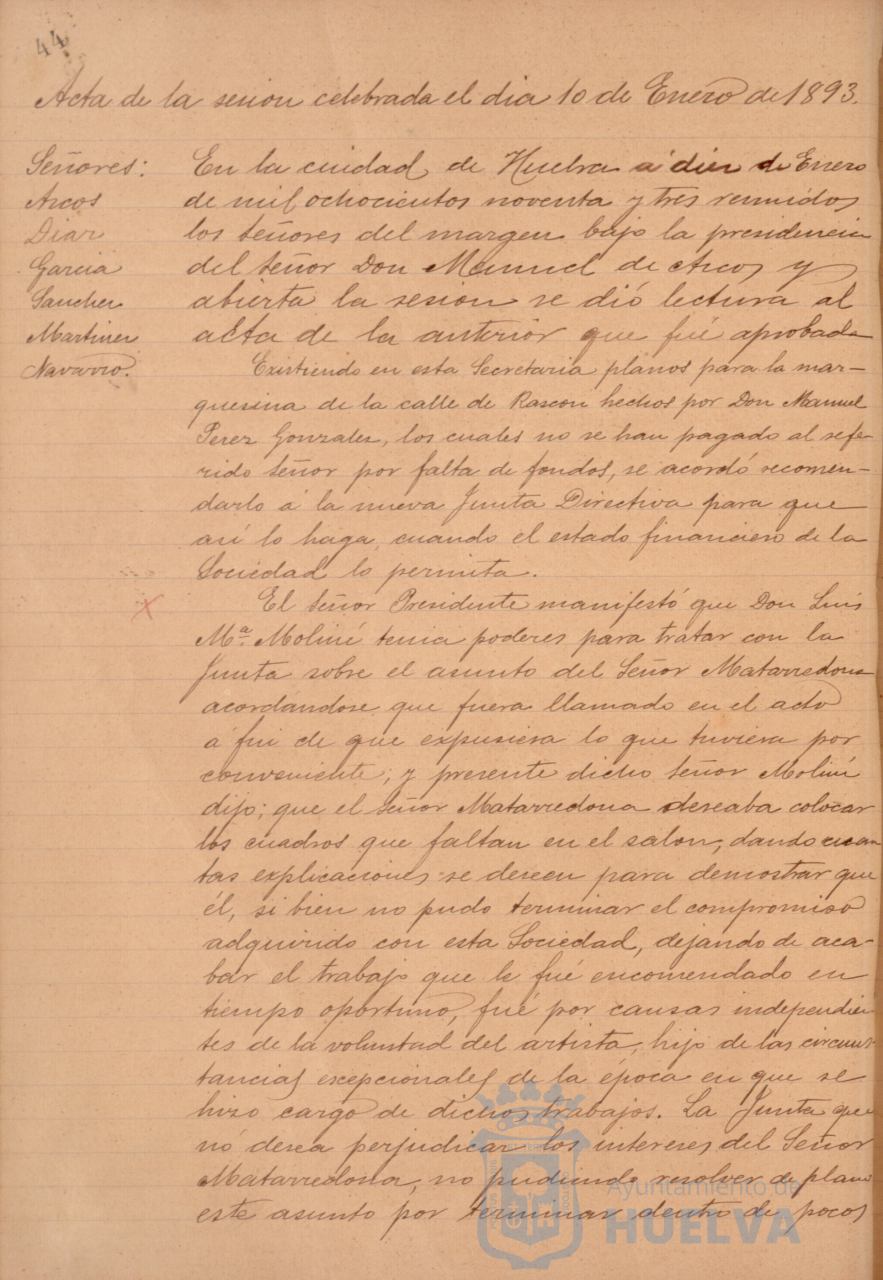 44
Acta de la sesion celebrada el dia 10 de Enero de 1893.
Señores:
Arcos
Diaz
Garcia
Sanchez
Martinez
Navarro.
En la ciudad de Huelva a diez de Enero
de mil ochocientos noventa y tres reunidos
los señores del margen bajo la presidencia
del señor Don Manuel de Arcos y
abierta la sesion se dió lectura al
acta de la anterior que fué aprobada
Existiendo en esta Secretaria planos para la mar-
quesina de la calle de Rascon hechos por Don Manuel
Perez Gonzalez, los cuales no se han pagado al refe-
rido señor por falta de fondos, se acordó recomen-
darlo á la nueva Junta Directiva para que
asi lo haga, cuando el estado financiero de la
Sociedad lo permita.
El señor Presidente manifestó que Don Luis
Mª. Moliní tenia poderes para tratar con la
Junta sobre el asunto del Señor Matarredona
acordándose que fuera llamado en el acto
á fin de que expusiera lo que tuviera por
conveniente; y presente dicho señor Moliní
dijo; que el señor Matarredona deseaba colocar
los cuadros que faltan en el salon, dando cuan
tas explicaciones se deseen para demostrar que
él, si bien no pudo terminar el compromiso
adquirido con esta Sociedad, dejando de aca-
bar el trabajo que le fué encomendado en
tiempo oportuno, fué por causas independien
tes de la voluntad del artista, hijo de las circuns-
tancias excepcionales de la época en que se
hizo cargo de dichos trabajos. La Junta que
nó desea perjudicar los intereses del Señor
Matarredona, no pudiendo resolver de plano
este asunto por terminar dentro de pocos
Ayuntamiento de
HUELVA